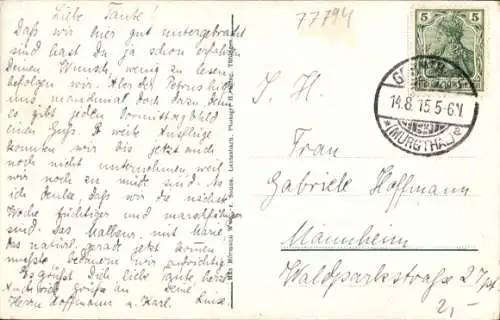 Liebe Tante!
Daß wir hier gut untergebracht
sind hast Du ja schon erfahren
Deinen Wunsch, wenig zu lesen
befolgen wir. Aber der Petrus hilft
uns manchmal doch dazu, denn
es gibt jeden Vormittag bald
einen Guß. Weite Ausflüge
konnten wir bis jetzt auch
noch nicht unternehmen weil
wir noch zu müde sind.
ich denke, daß wir die nächste
Woche tüchtiger und marschfähiger
sind. Das Malheur, mit
das natürl. gerade jetzt kommen
mußte bedauern wir aufrichtig
Es grüßt Dich liebe Tante herzl.
Auch viele Grüße an Deine
Herrn Hoffmann u. Karl. Luise
77794
5 5
14.8.15.5-6.V
*(MURGTHAL)*
S. H.
Frau
Gabriele Hoffmann
Mannheim
Waldparkstraße 27
2,-